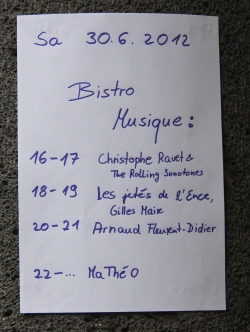 Sa 30.6.2012
Bistro
Musique:
16-17 Christophe Ravet &
The Rolling Sonotones
18-19 Les jetés de l'Encre,
Gilles Maire
20-21 Arnaud Fleurent-Didier
22-... MaThéO